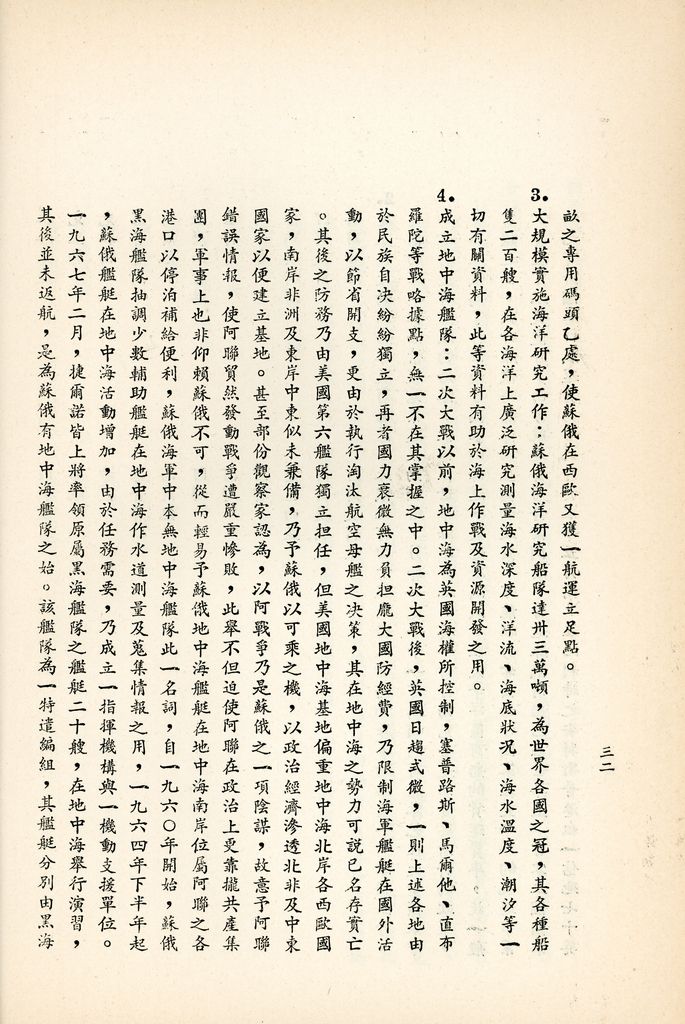 畝之專用碼頭乙處，使蘇俄在西歐又獲一航運立足點。
3.大規模實施海洋研究工作：蘇俄海洋研究船隊達卅三萬噸，為世界各國之冠，其各種船
隻二百艘，在各海洋上廣泛研究測量海水深度、洋流、海底狀況、海水溫度、潮汐等一
切有關資料，此等資料有助於海上作戰及資源開發之用。
4.成立地中海艦隊：二次大戰以前，地中海為英國海權所控制，塞普路斯、馬爾他、直布
羅陀等戰略據點，無一不在其掌握之中。二次大戰後，英國日趨式微，一則上述各地由
於民族自決紛紛獨立，再者國力衰微無力負担龐大國防經費，乃限制海軍艦艇在國外活
動，以節省開支，更由於執行淘汰航空母艦之决策，其在地中海之勢力可說已名存實亡
。其後之防務乃由美國第六艦隊獨立担任，但美國地中海基地偏重地中海北岸各西歐國
家，南岸非洲及東岸中東似未兼備，乃予蘇俄以可乘之機，以政治經濟滲透北非及中東
國家以便建立基地。甚至部份觀察家認為，以阿戰爭乃是蘇俄之一項陰謀，故意予阿聯
錯誤情報，使阿聯貿然發動戰爭遭嚴重慘敗，此舉不但迫使阿聯在政治上更靠攏共產集
團，軍事上也非仰賴蘇俄不可，從而輕易予蘇俄地中海艦艇在地中海南岸位屬阿聯之各
港口以停泊補給便利，蘇俄海軍中本無地中海艦隊此一名詞，自一九六〇年開始，蘇俄
黑海艦隊抽調少數輔助艦艇在地中海作水道測量及蒐集情報之用，一九六四年下半年起
，蘇俄艦艇在地中海活動增加，由於任務需要，乃成立一指揮機構與一機動支援單位。
一九六七年二月，捷爾諾皆上將率領原屬黑海艦隊之艦艇二十艘，在地中海舉行演習，
其後並未返航，是為蘇俄有地中海艦隊之始。該艦隊為一特遣編組，其艦艇分別由黑海
三二